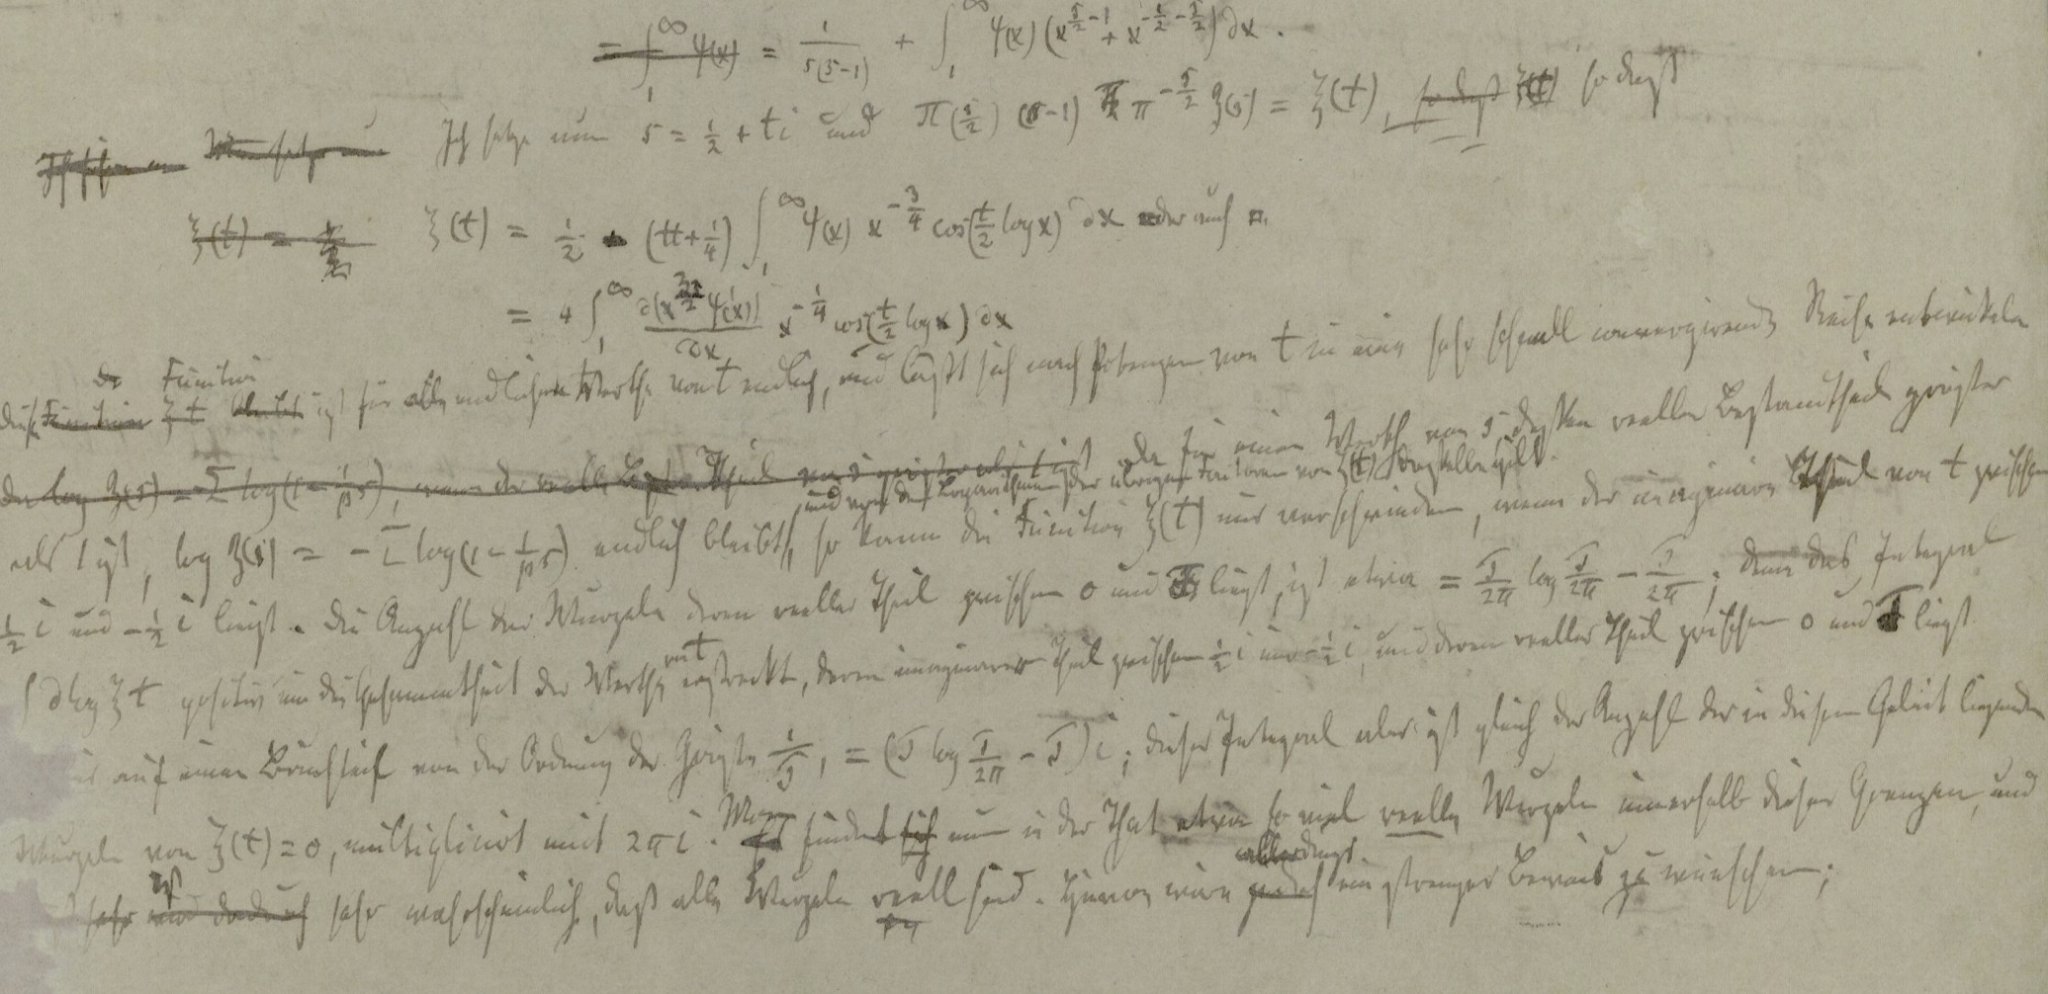 = ∫₁^∞ ψ(x) = 1/(s(s-1)) + ∫₁^∞ ψ(x) (x^(s/2 - 1) + x^(-1/2 - s/2)) ∂x.
Ich setze nun s = 1/2 + ti und Π(s/2) (s-1) π^(-s/2) ζ(s) = ξ(t), so daß ξ(t) so daß
ξ(t) = ξ(t) = 1/2 - (tt + 1/4) ∫₁^∞ ψ(x) x^(-3/4) cos(t/2 log x) ∂x oder auch
= 4 ∫₁^∞ ∂(x^(3/2) ψ'(x))/∂x x^(-1/4) cos(t/2 log x) ∂x
Diese Function ξt bleibt ist für alle endlichen Werthe von t endlich, und läßt sich nach Potenzen von t in eine sehr schnell convergirende Reihe entwickeln
Function
Da log ζ(s) = -Σ log(1 - 1/p^s), wenn der reelle Theil von s größer als 1 ist da für einen Werth von s dessen reeller Bestandtheil größer
und von den Logarithmen der übrigen Factoren von ξ(t) dasselbe gilt
als 1 ist, log ζ(s) = -Σ log(1 - 1/p^s) endlich bleibt, so kann die Function ξ(t) nur verschwinden, wenn der imaginäre Theil von t zwischen
1/2 i und -1/2 i liegt. Die Anzahl der Wurzeln deren reeller Theil zwischen 0 und T liegt, ist etwa = T/2π log T/2π - T/2π; denn das Integral
∫ d log ξt positiv um die Gesammtheit der Werthe von t erstreckt, deren imaginärer Theil zwischen 1/2 i und -1/2 i, und deren reeller Theil zwischen 0 und T liegt
auf einen Bruchtheil von der Ordnung der Größe 1/T, = (T log T/2π - T) i; dieses Integral aber ist gleich der Anzahl der in diesem Gebiet liegenden
Wurzeln von ξ(t) = 0, multiplicirt mit 2πi. Man findet sich nun in der That etwa so viel reelle Wurzeln innerhalb dieser Grenzen, und
sehr und dadurch sehr wahrscheinlich, daß alle Wurzeln reell sind. Hiervon wäre jedoch allerdings ein strenger Beweis zu wünschen;